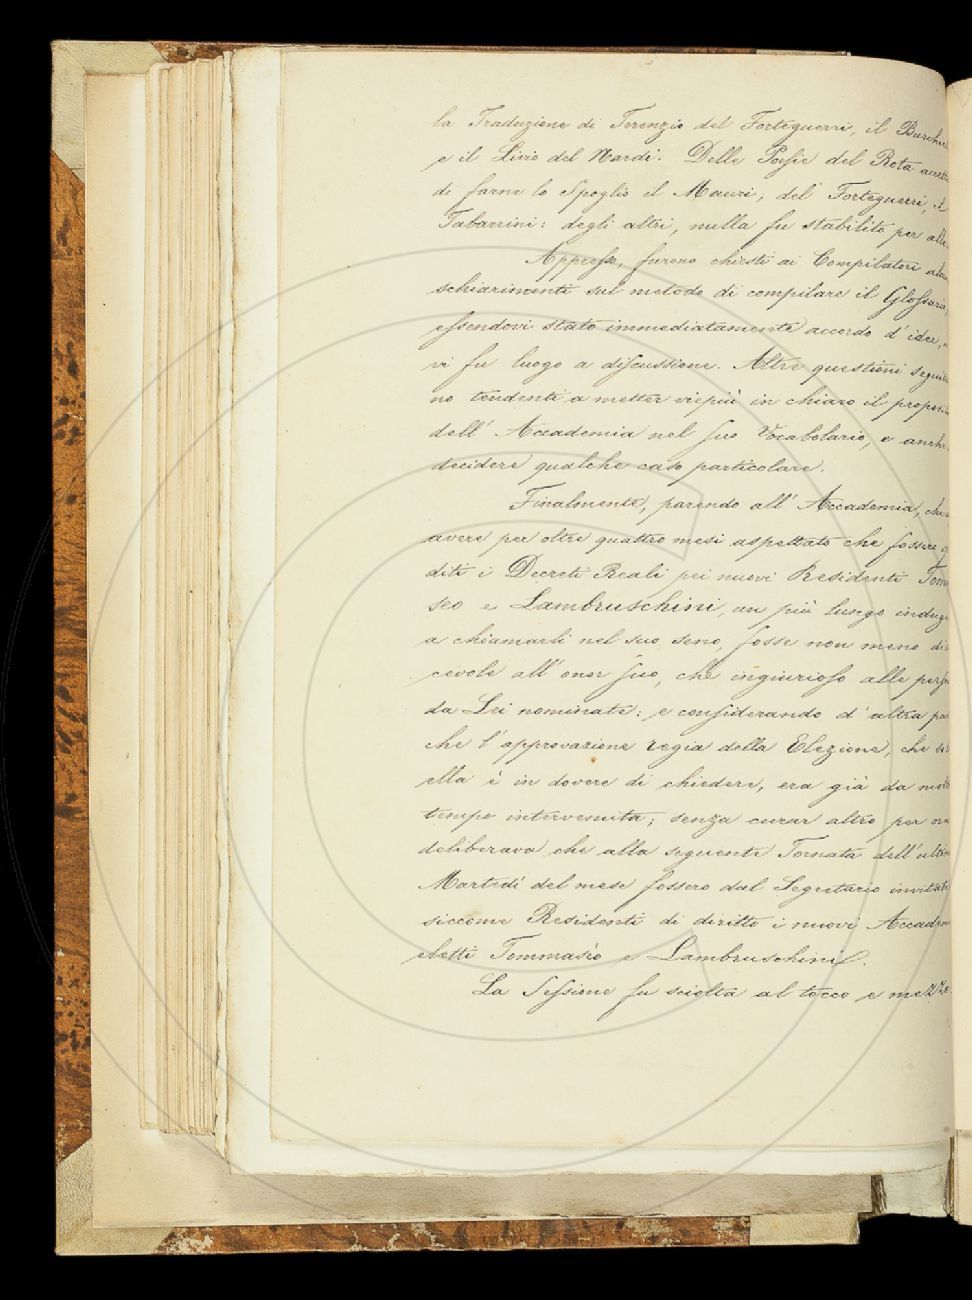 la Traduzione di Terenzio del Forteguerri, il Burchie
e il Livio del Nardi. Delle Poesie del Rota accett
di farne lo spoglio il Mauri; del Forteguerri, il
Tabarrini: degli altri, nulla fu stabilito per allo
Appresso, furono chiesti ai Compilatori alcu
schiarimenti sul metodo di compilare il Glossario,
essendovi stato immediatamente accordo d'idee,
vi fu luogo a discussione. Altre questioni seguiro
no tendenti a metter viepiù in chiaro il proposi
dell'Accademia nel suo Vocabolario, e anche
decidere qualche caso particolare.
Finalmente, parendo all'Accademia, che
avere per oltre quattro mesi aspettato che fossero
diti i Decreti Reali pei nuovi Residenti Tom
seo e Lambruschini, un più lungo indug
a chiamarli nel suo seno, fosse non meno di
cevole all'onor suo, che ingiurioso alle perso
da Lei nominate: e considerando d'altra par
che l'approvazione regia della Elezione, che
ella è in dovere di chiedere, era già da molt
tempo intervenuta; senza curar altro per or
deliberava che alla seguente Tornata dell'ultim
Martedì del mese fossero dal Segretario invitati
siccome Residenti di diritto i nuovi Accadem
eletti Tommasèo e Lambruschini.
La Sessione fu sciolta al tocco e mezzo